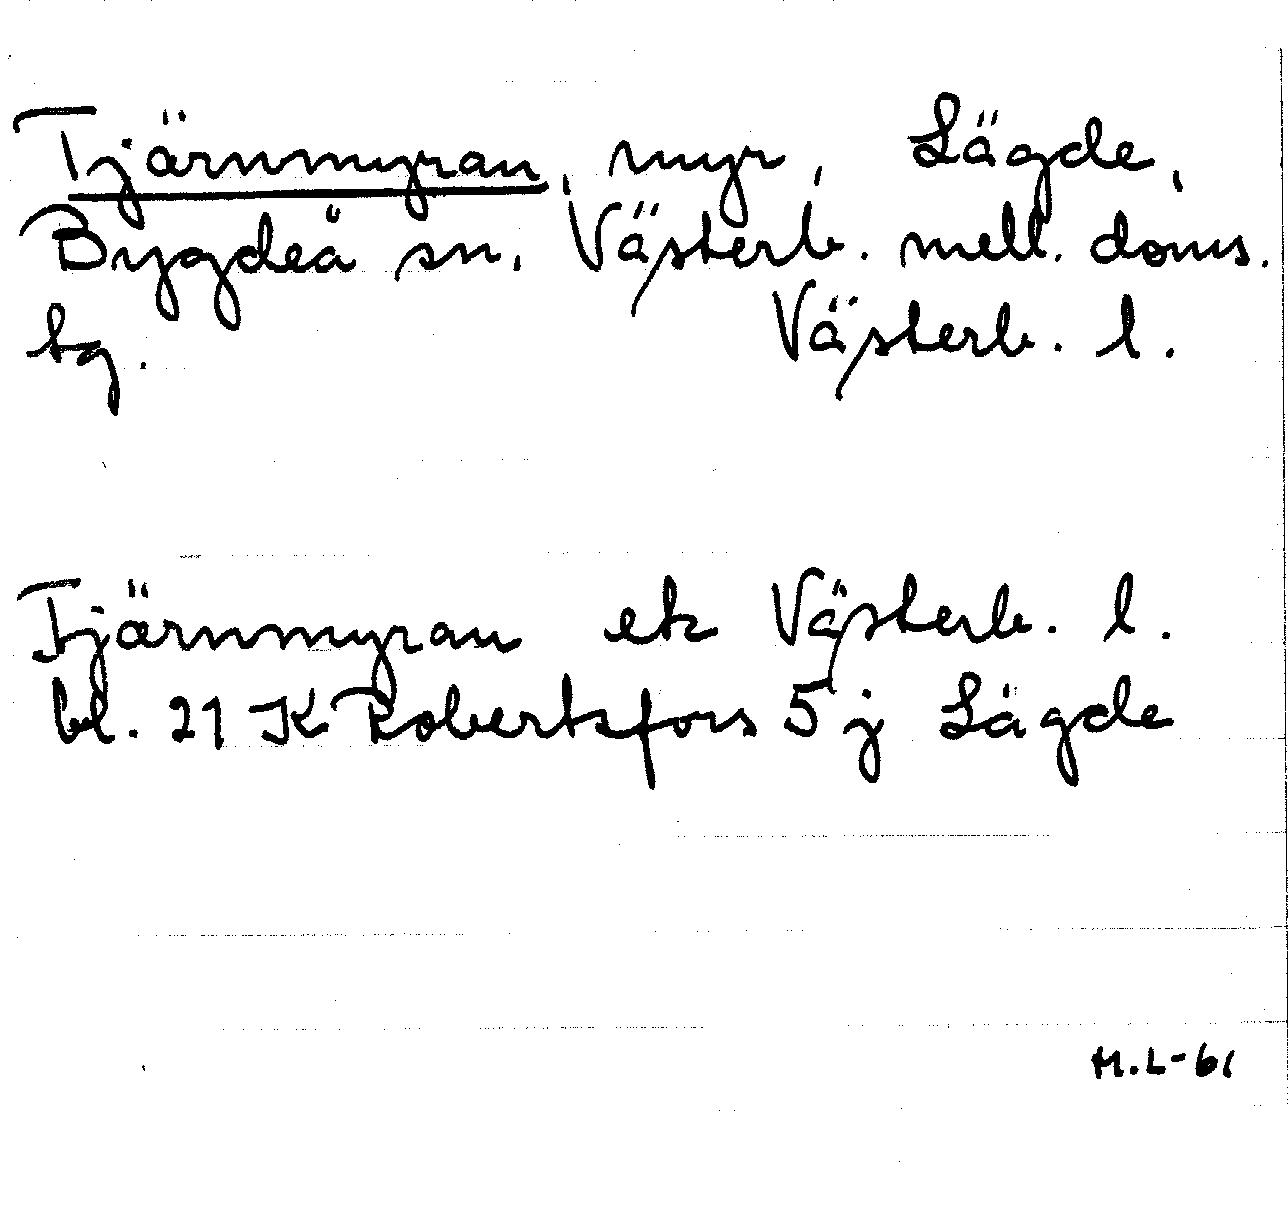 Tjärnmyran, myr, Lägde,
Bygdeå sn, Västerb. mell. doms.
tg. Västerb. l.
Tjärnmyran ek Västerb. l.
bl. 21 K Robertsfors 5 j Lägde
H.L-61